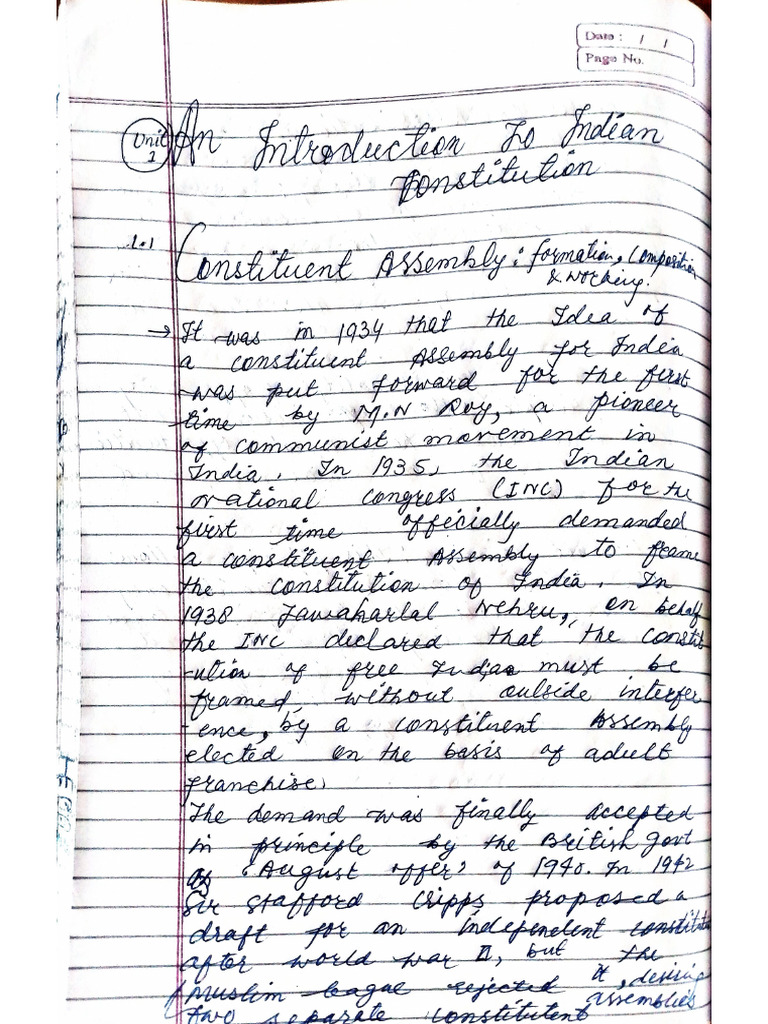 Date : / /
Page No.
Unit 1
An Introduction To Indian
Constitution
1.1
Constituent Assembly: formation, Composition
& working.
→ It was in 1934 that the Idea of
a constituent Assembly for India
was put forward for the first
time by M.N Roy, a pioneer
of communist movement in
India. In 1935, the Indian
National Congress (INC) for the
first time officially demanded
a constituent Assembly to frame
the constitution of India. In
1938 Jawaharlal Nehru, on behalf
the INC declared that the constit
-ution of free India must be
framed, without outside interfer
-ence, by a constituent Assembly
elected on the basis of adult
franchise.
The demand was finally accepted
in principle by the British Govt
as 'August offer' of 1940. In 1942
Sir Stafford Cripps proposed a
draft for an independent constitut
after world war II, but the
Muslim league rejected it, desiring
two separate constitutent assemblies